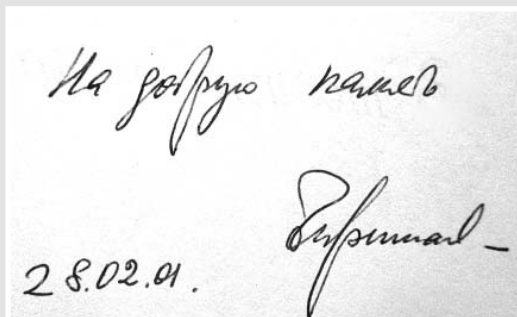 На добрую память
28.02.01.